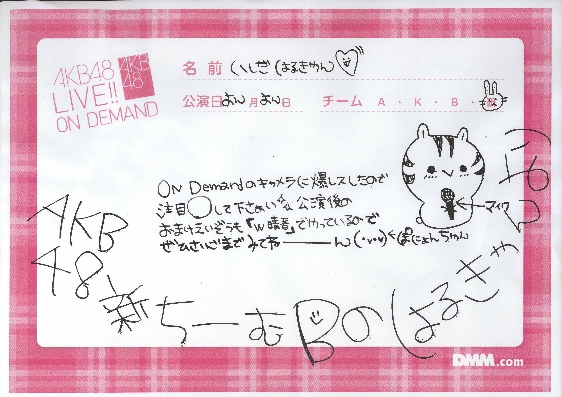 AKB48
LIVE!!
ON DEMAND
AKB
48
名前 いしだ はるきゃん
公演日 よん月よん日 チーム A・K・B・
ON Demandのキャメラに爆レスしたので
注目◯して下さぁい 公演後の
おまけえいぞうも「W晴香」でやっているので
ぜひさいごまでみてねーーーん(・v・v)<ぽにょんちゃん
マイク
AKB
48
新ちーむBのはるきゃ
DMM.com